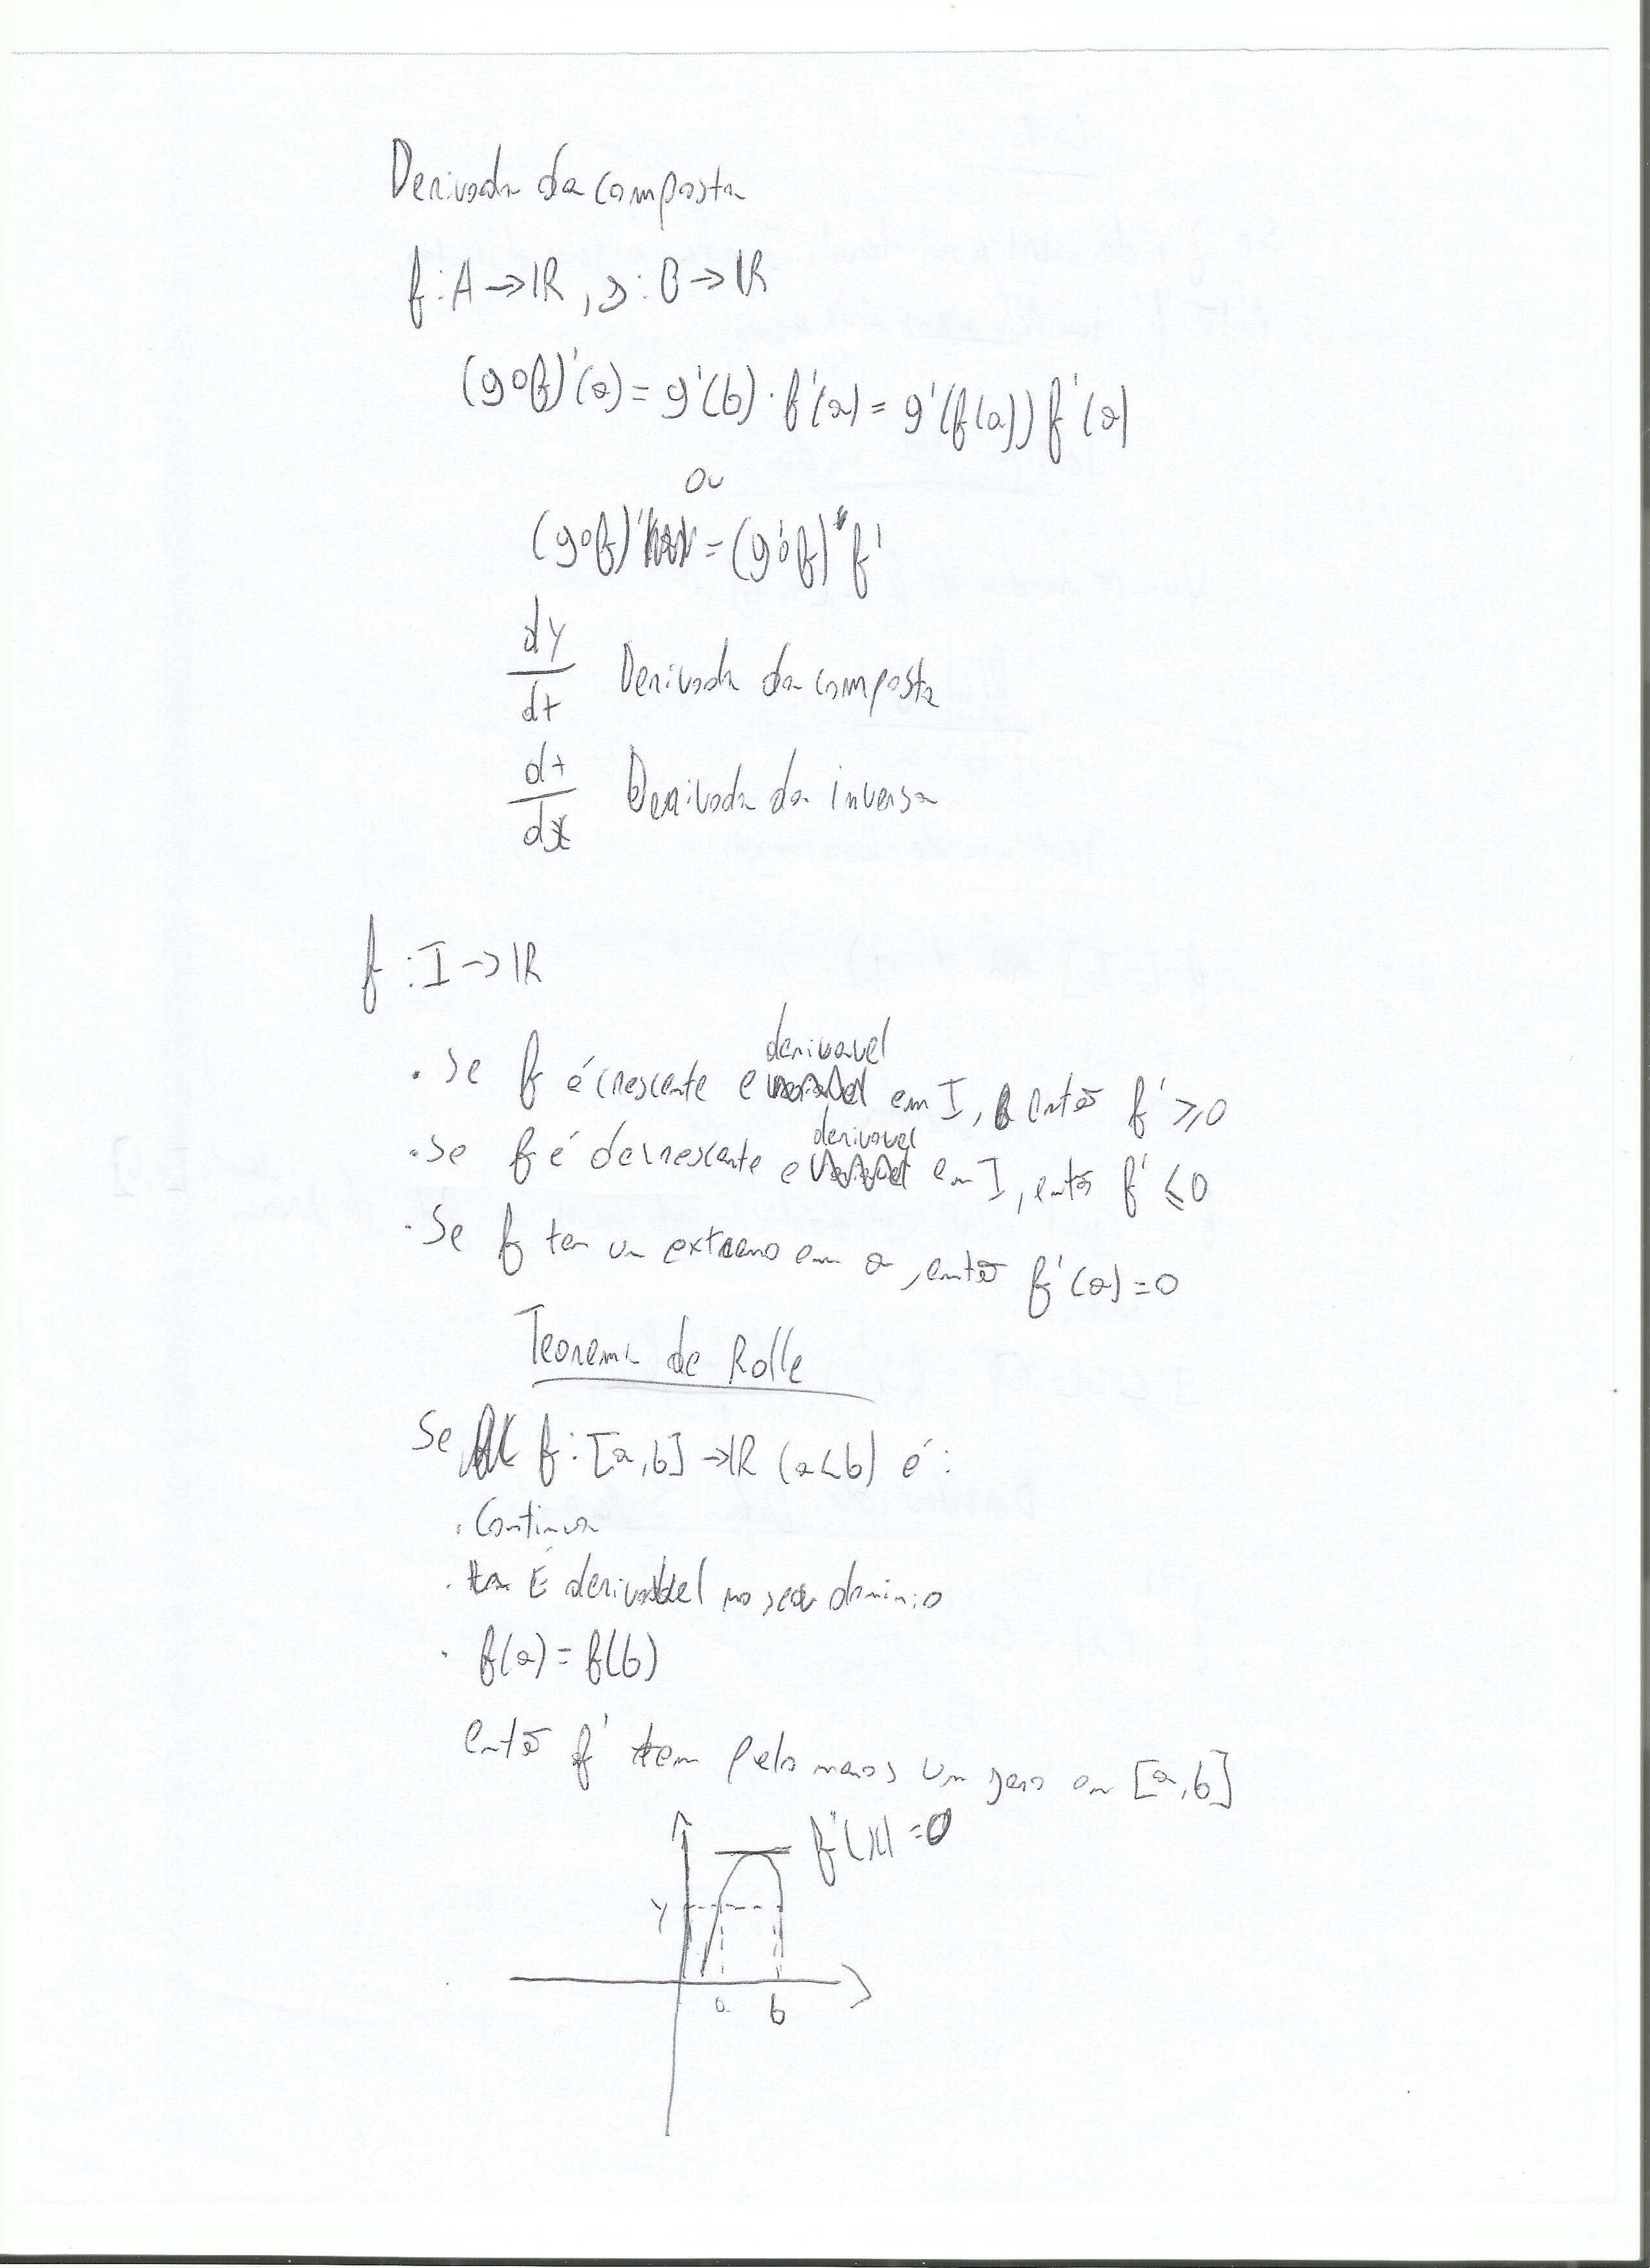 Derivada da composta
f: A → ℝ, g: B → ℝ
(g∘f)'(a) = g'(b) · f'(a) = g'(f(a)) f'(a)
ou
(g∘f)' = (g'∘f) · f'
dy/dt Derivada da composta
dt/dx Derivada da inversa
f: I → ℝ
· Se f é crescente e derivavel em I, então f' ≥ 0
· Se f é decrescente e derivavel em I, então f' ≤ 0
· Se f tem um extremo em a, então f'(a) = 0
Teorema de Rolle
Se f: [a,b] → ℝ (a<b) é:
· Continua
· É derivavel no seu dominio
· f(a) = f(b)
então f' tem pelo menos um zero em [a,b]
f'(x) = 0
y
a b